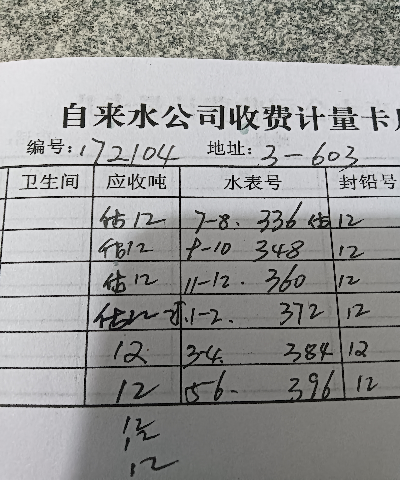 自来水公司收费计量卡
编号: 172104 地址: 3-603
卫生间 应收吨 水表号 封铅号
估12 7-8. 336 估12
估12 9-10 348 12
估12 11-12. 360 12
估12 1-2. 372 12
12. 3-4. 384 12
12 5-6. 396 12
12
12
12